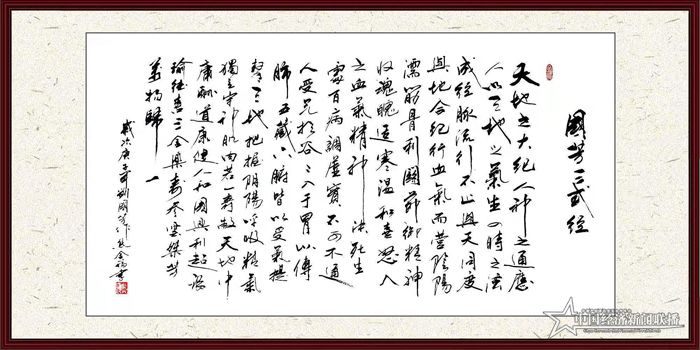 國芳三武經
天地之大紀人神之通應
人以天地之氣生四時之法
成經脈流行不止與天同度
與地合紀行血氣而營陰陽
濡筋骨利關節御精神
收魂魄適寒溫和喜怒人
之血氣精神決死生
處百病調虛實不可不通
人受气於谷谷入于胃以傳
肺五藏六腑皆以受氣提
挈天地把握陰陽呼吸精氣
獨立守神肌肉若一壽敝天地中
康酬道康健人和國興利起
三合與壽
萬物歸一
歲次庚子年劉國芳作
中国经济新闻联播